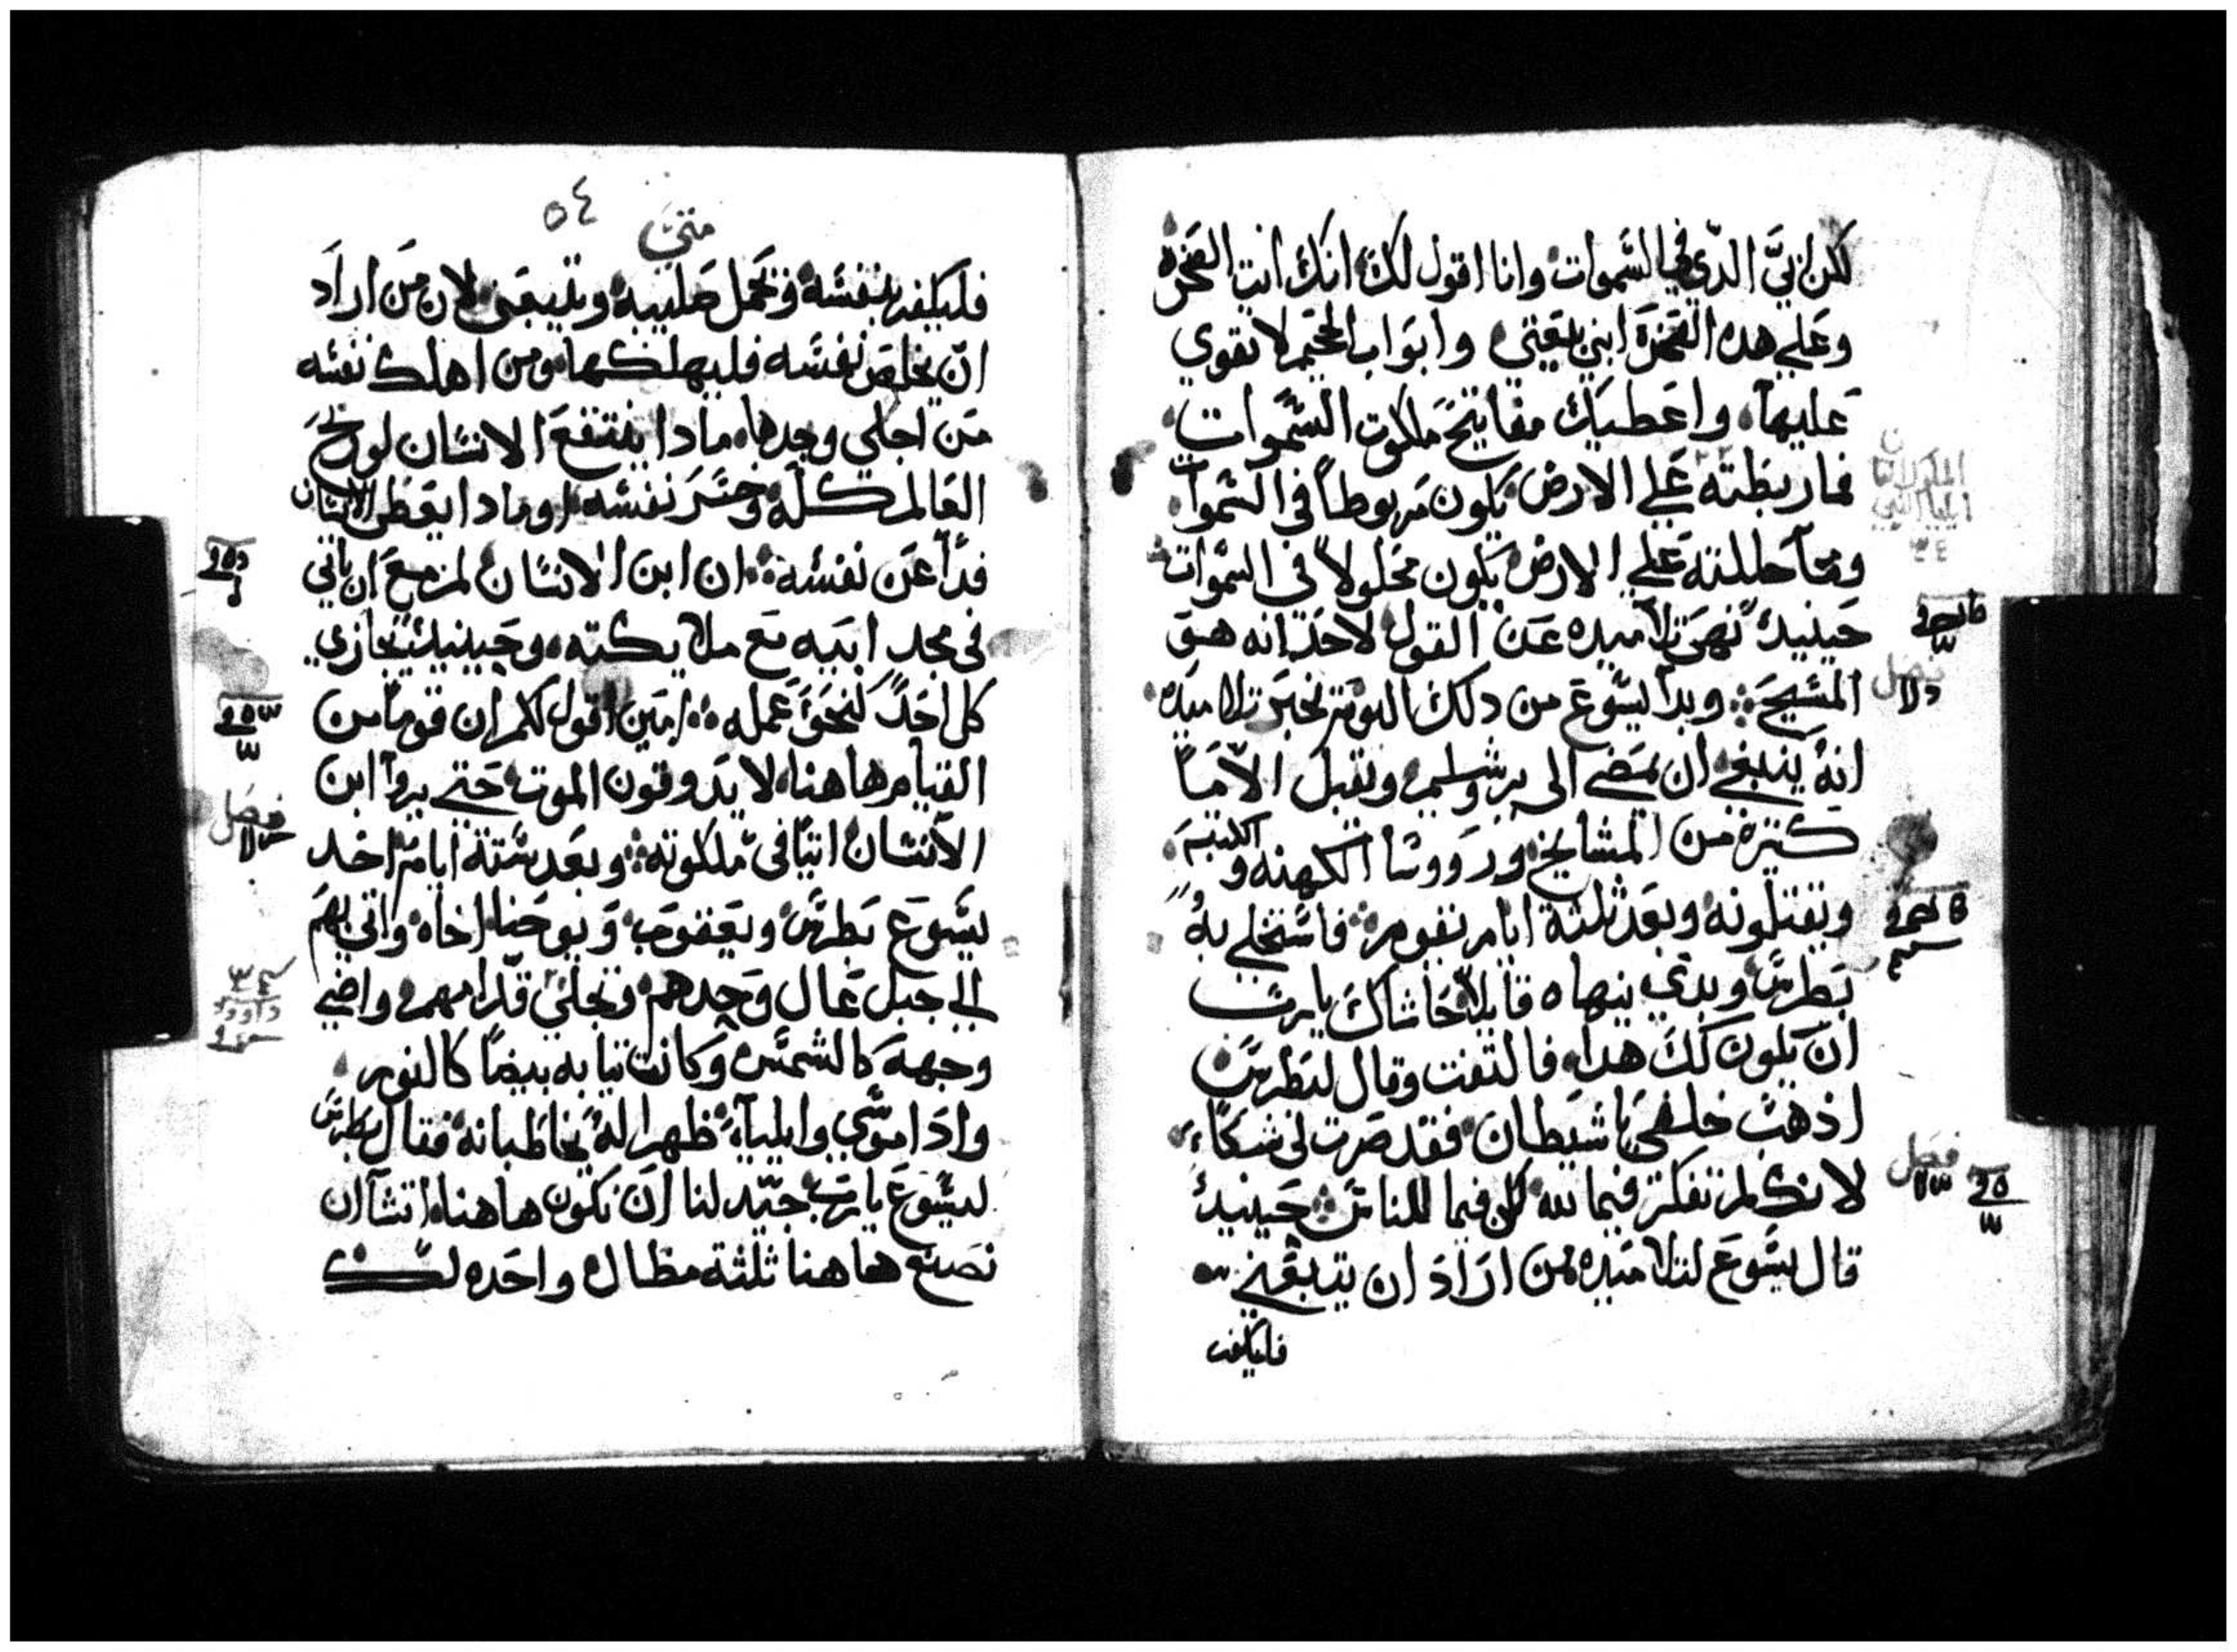 لكن ابي الدي في السموات وانا اقول لك انك انت الصخره
وعلي هده الصخرة ابني بيعتي وابواب الجحيم لا تقوي
عليها واعطيك مفاتيح ملكوت السموات
فما ربطته علي الارض يكون مربوطاً في السموات
وما حللته علي الارض يكون محلولاً في السموات
حينيد نهي تلاميده عن القول لاحد انه هو
المسيح وبدا يسوع من دلك اليوم يخبر تلاميده
انه ينبغي ان يمضي الى يروشليم ويقبل الاماً
كتيرة من المشايخ ورووسا الكهنه والكتبه
ويقتلونه وبعد ثلثة ايام يقوم فاستخلي به
بطرس وبدي ينهاه قايلاً حاشاك يارب
ان يكون لك هدا فالتفت وقال لبطرس
اذهب خلفي يا شيطان فقد صرت لى شكاً
لانك لم تفكر فيما لله لكن فيما للناس حينيد
قال يسوع لتلاميده من اراد ان يتبعني
فليكفر
فصل
فصل
٥٤
متي
فليكفر بنفسه ويحمل صليبه ويتبعني لان من اراد
ان يخلص نفسه فليهلكها ومن اهلك نفسه
من اجلي وجدها مادا ينتفع الانسان لو ربح
العالم كله وخسر نفسه او مادا يعطى الانسان
فدآ عن نفسه ان ابن الانسان لمزمع ان ياتي
في مجد ابيه مع ملايكته وحينيد يجازي
كل احد كنحو عمله امين اقول لكم ان قوماً من
القيام هاهنا لا يدوقون الموت حتي يروا ابن
الانسان اتياً في ملكوته وبعد ستة ايام اخد
يسوع بطرس ويعقوب ويوحنا اخاه واتي بهم
الي جبل عال وحدهم وتجلي قدامهم واضي
وجهه كالشمس وكانت تيابه بيضاً كالنور
واذا موسي وايلياء ظهرا له يخاطبانه فقال بطرس
ليسوع يا رب جيد لنا ان نكون هاهنا اتشآ ان
نصنع هاهنا ثلثة مظال واحده لك
فصل
داوود